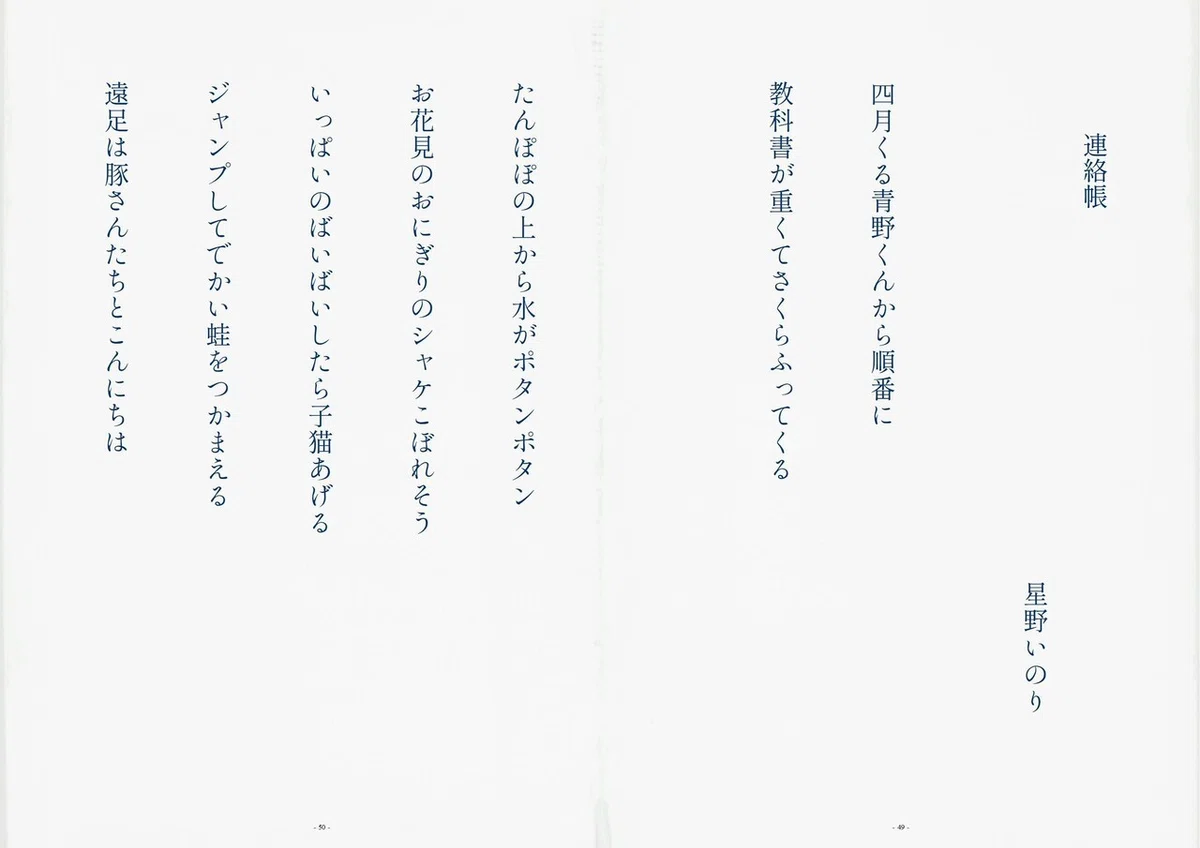 連絡帳
星野いのり
四月くる青野くんから順番に
教科書が重くてさくらふってくる
- 49 -
たんぽぽの上から水がポタンポタン
お花見のおにぎりのシャケこぼれそう
いっぱいのばいばいしたら子猫あげる
ジャンプしてでかい蛙をつかまえる
遠足は豚さんたちとこんにちは
- 50 -